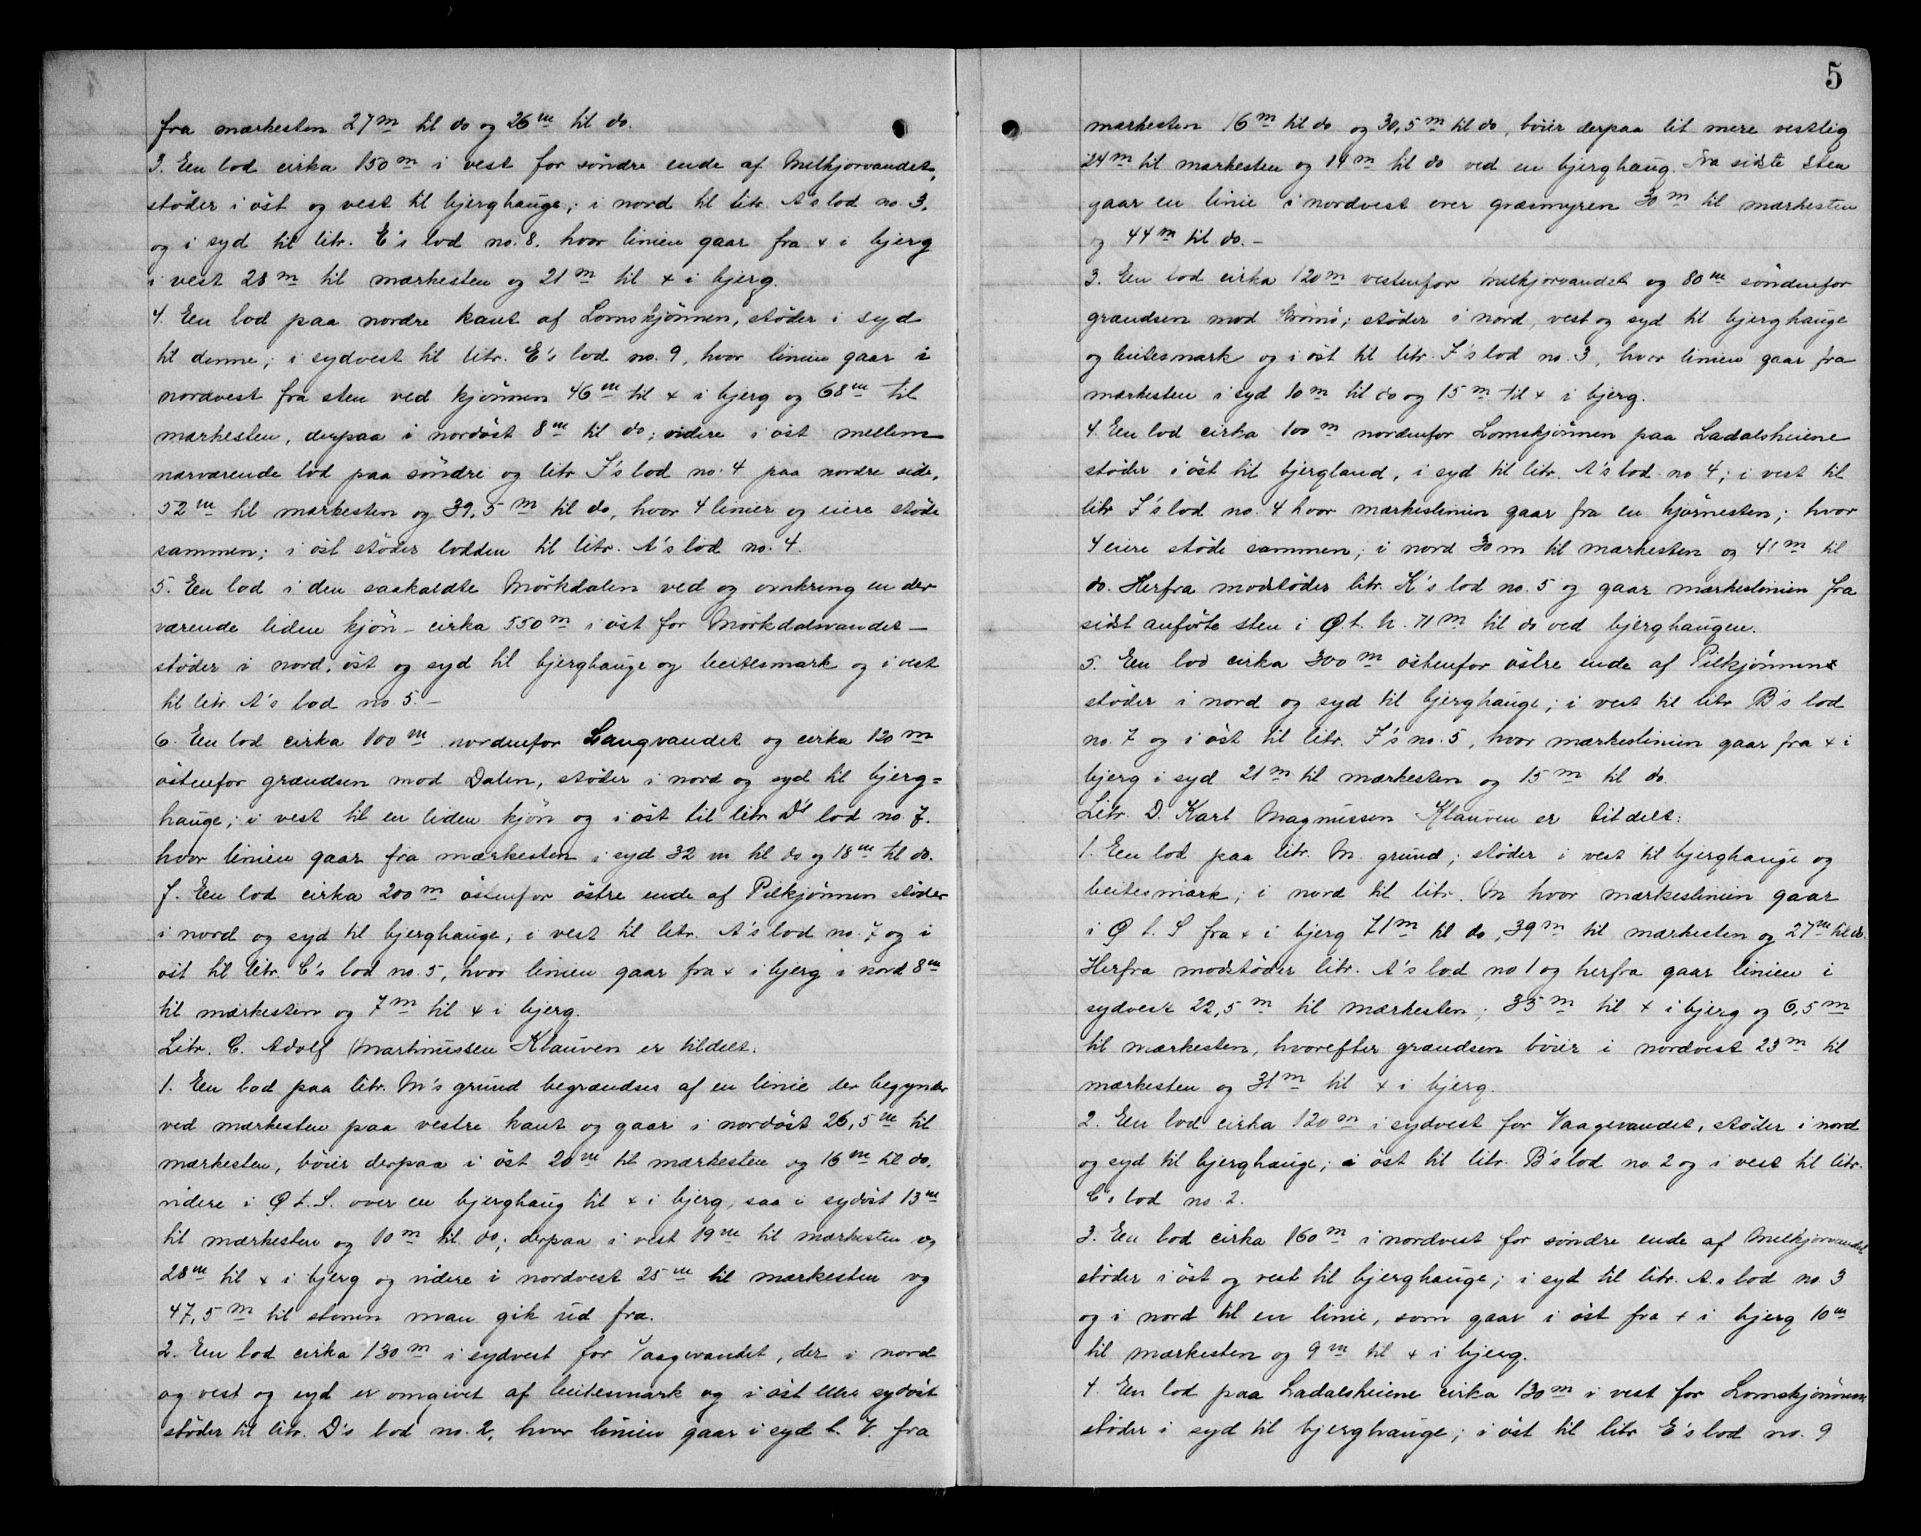 fra mærkesten 27 m til do og 26 m til do.
3. En lod cirka 150 m i vest for søndre ende af Melkjorvandet,
støder i øst og vest til bjerghauge; i nord til litr. A's lod no. 3.
og i syd til litr. E's lod no. 8. hvor linien gaar fra x i bjerg
i vest 28 m til mærkesten og 21 m til x i bjerg.
4. En lod paa nordre kant af Lomskjönnen, støder i syd
til denne; i sydvest til litr. E's lod no. 9, hvor linien gaar i
nordvest fra sten ved kjönnen 46 m til x i bjerg og 68 m til
mærkesten, derpaa i nordøst 8 m til do; videre i øst mellem
nærværende lod paa søndre og litr F's lod no. 4 paa nordre side,
52 m til mærkesten og 39,5 m til do, hvor 4 linier og eiere støde
sammen; i øst støder lodden til litr. A's lod no. 4.
5. En lod i den saakaldte Mørkdalen ved og omkring en der
værende liden kjön – cirka 550 m i øst for Mørkdalsvandet –
støder i nord, øst og syd til bjerghauge og beitesmark og i vest
til litr. A's lod no 5. –
6. En lod cirka 100 m nordenfor Langvandet og cirka 120 m
østenfor grændsen mod Dalen, støder i nord og syd til bjerg=
hauge; i vest til en liden kjön og i øst til litr D's lod no. 7.
hvor linien gaar fra mærkesten i syd 32 m til do og 18 m til do.
7. En lod cirka 200 m østenfor østre ende af Pilkjönnen støder
i nord og syd til bjerghauge, i vest til litr. A's lod no. 7 og i
øst til litr. C's lod no. 5, hvor linien gaar fra x i bjerg i nord 8 m
til mærkesten og 7 m til x i bjerg.
Litr. C. Adolf Martinussen Klauven er tildelt.
1. En lod paa litr. M's grund begrændses af en linie der begynder
ved mærkesten paa vestre kant og gaar i nordøst 26,5 m til
mærkesten, bøier derpaa i øst 20 m til mærkesten og 16 m til do,
videre i Ø t. S. over en bjerghaug til x i bjerg, saa i sydøst 13 m
til mærkesten og 10 m til do; derpaa i vest 19 m til mærkesten og
28 m til x i bjerg og videre i nordvest 25 m til mærkesten og
47,5 m til stenen man gik ud fra.
2. En lod cirka 130 m i sydvest for Vaagevandet, der i nord
og vest og syd er omgivet af beitesmark og i øst eller sydøst
støder til litr. D's lod no. 2, hvor linien gaar i syd t. V. fra
5
mærkesten 16 m til do og 30,5 m til do, bøier derpaa lit mere vestlig
24 m til mærkesten og 19 m til do ved en bjerghaug. Fra sidste sten
gaar en linie i nordvest over græsmyren 30 m til mærkesten
og 44 m til do. –
3. En lod cirka 120 m vestenfor Melkjorvandet og 80 m søndenfor
grændsen mod Strömö; støder i nord, vest og syd til bjerghauge
og beitesmark og i øst til litr. F's lod no. 3, hvor linien gaar fra
mærkesten i syd 10 m til do og 15 m til x i bjerg.
4. En lod cirka 100 m nordenfor Lomskjönnen paa Ladalsheiene
støder i øst til bjergland, i syd til litr. A's lod no 4; i vest til
litr F's lod no. 4 hvor mærkeslinien gaar fra en hjørnesten; hvor
4 eiere støde sammen; i nord 30 m til mærkesten og 41 m til
do. Herfra modstøder litr. K's lod no. 5 og gaar mærkeslinien fra
sidst anførte sten i Ø. t. N. 71 m til do ved bjerghaugen.
5. En lod cirka 300 m østenfor østre ende af Pilkjönnen
støder i nord og syd til bjerghauge; i vest til litr B's lod
no. 7 og i øst til litr. F's no. 5, hvor mærkeslinien gaar fra x i
bjerg i syd 21 m til mærkesten og 15 m til do.
Litr. D. Karl Magnussen Klauven er tildelt:
1. En lod paa litr. M. grund; støder i vest til bjerghauge og
beitesmark; i nord til litr. M hvor mærkeslinien gaar
i Ø t. S fra x i bjerg 71 m til do, 39 m til mærkesten og 27 m til do.
Herfra modstøder litr. A's lod no 1 og herfra gaar linien i
sydvest 22,5 m til mærkesten; 35 m til x i bjerg og 6,5 m
til mærkesten, hvorefter grændsen bøier i nordvest 23 m til
mærkesten og 31 m til x i bjerg.
2. En lod cirka 120 m i sydvest for Vaagevandet, støder i nord
og syd til bjerghauge; i øst til litr. B's lod no. 2 og i vest til litr.
C's lod no. 2.
3. En lod cirka 160 m i nordvest for søndre ende af Melkjorvandet
støder i øst og vest til bjerghauge; i syd til litr. A.s lod no. 3
og i nord til en linie, som gaar i øst fra x i bjerg 10 m
til mærkesten og 9 m til x i bjerg.
4. En lod paa Ladalsheiene cirka 130 m i vest for Lomskjönnen,
støder i syd til bjerghauge; i øst til litr E's lod no. 9